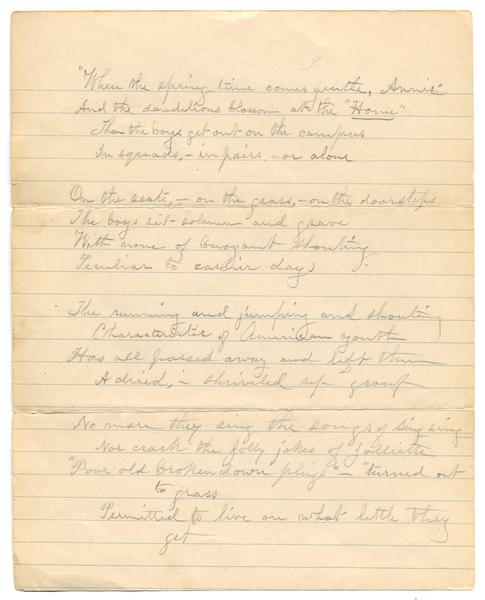 "When the spring time comes gentle, Annie"
And the dandelions blossom at the "Home"
Then the boys get out on the campus
In squads, - in pairs, - or alone
On the seats, - on the grass, - on the doorsteps
The boys sit solemn and grave
With none of buoyant shouting
Peculiar to earlier days.
The running and jumping and shouting
Characteristic of American youth
Has all passed away and left them
A dried, - shriveled up group
No more they sing the songs of
Nor crack the jolly jokes of
"Poor old broken down plugs" - "turned out
to grass
Permitted to live on what little they
get